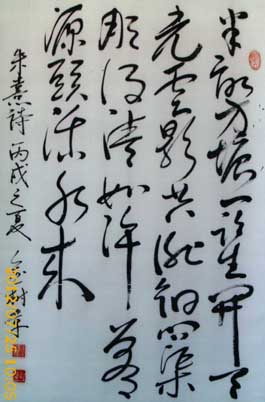 半畝方塘一鑑開天
光雲影共徘徊問渠
那得清如許為有
源頭活水来
朱熹詩 丙戌之夏
10:05